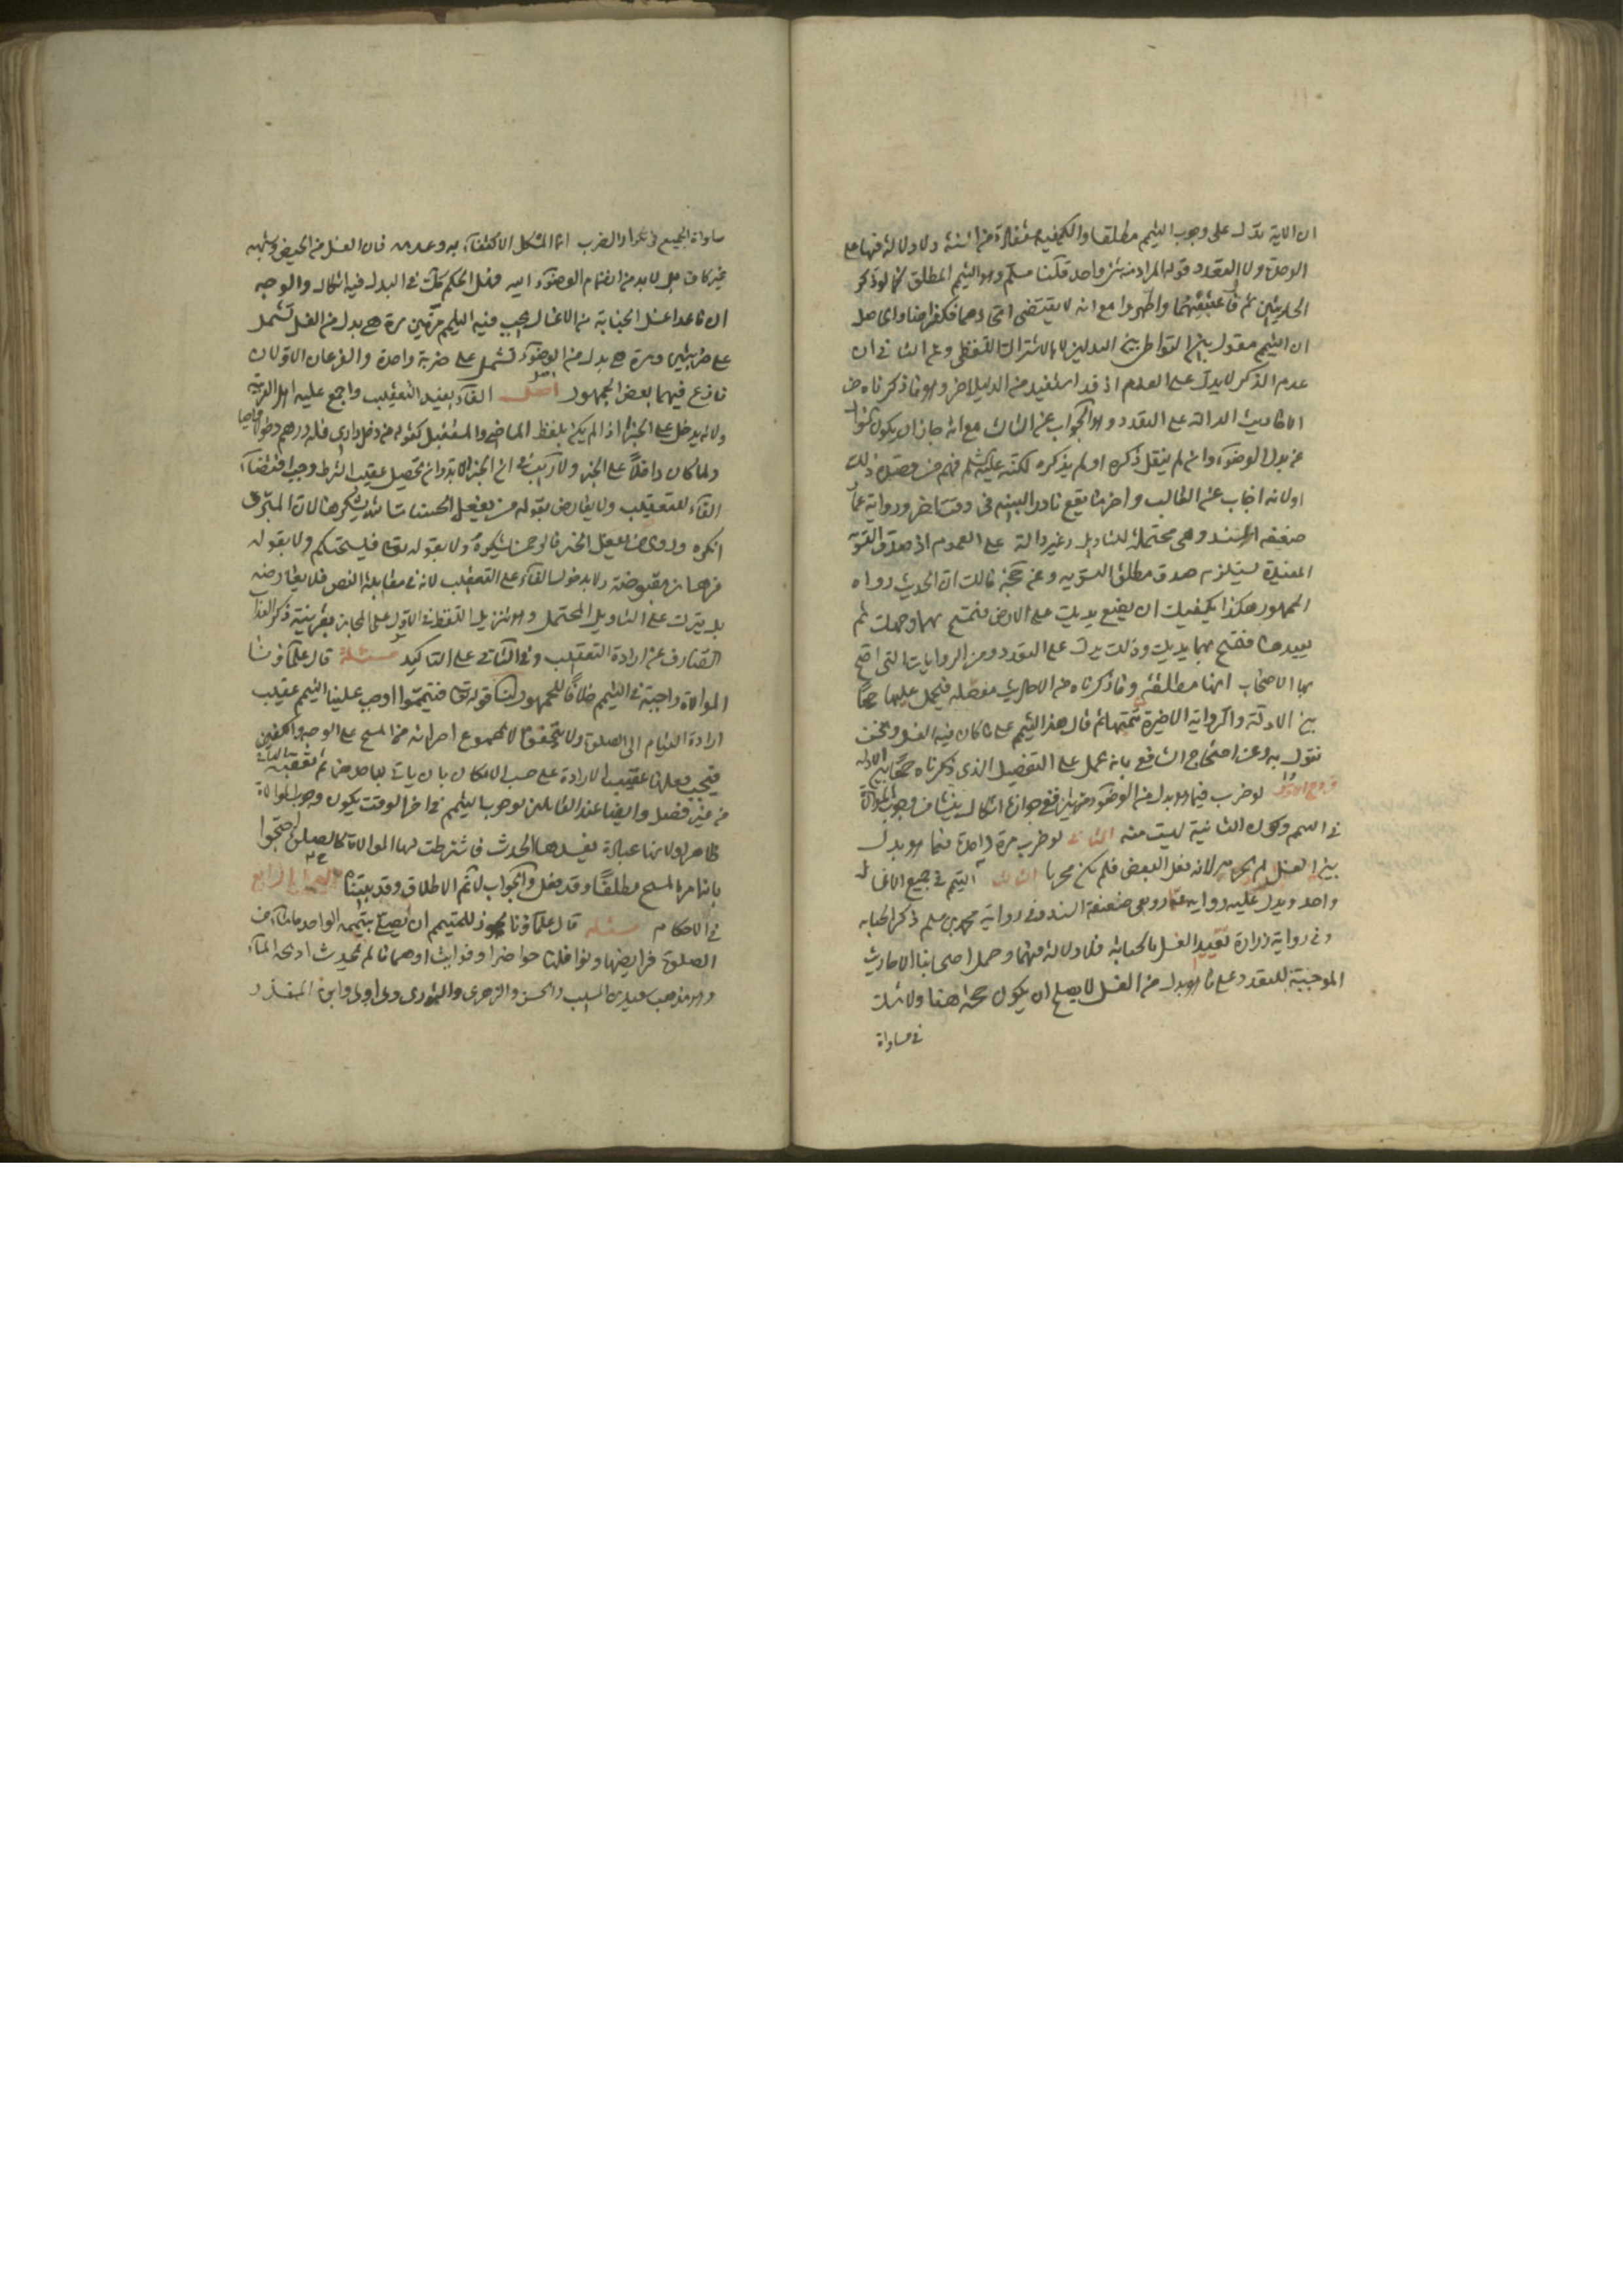 ان الاية تدل على وجوب التيمم مطلقا والكيفية مستفادة من السنة ولا دلالة فيها على
الوحدة ولا التعدد قوله المراد منه شيء واحد قلنا مسلم وهو التيمم المطلق كما لو ذكر
الحدثين ثم عقبهما واطهروا مع انه لا يقتضي اتحادهما فكذا هنا والحاصل
ان التيمم مقول بالتواطي بين البدلين لا بالاشتراك اللفظي وعن الثاني ان
عدم الذكر لا يدل على العدم اذ قد استفيد من الدليل اخر وهو ما ذكرناه من
الاحاديث الدالة على التعدد وهو الجواب عن الثالث مع انه جاز ان يكون
عن بدل الوضوء وان لم ينقل ذكره او لم يذكره لكنه عليه السلام فهم من قصده ذلك
او لانه اجاب عن الطالب واخر ما يقع نادرا البينه في وقت اخر ورواية عمار
ضعيفة السند وهي محتملة للتاويل وغير دالة على العموم اذ صدق التسوية
المقيدة يستلزم صدق مطلق التسوية وعن حجة مالك ان الحديث رواه
الجمهور هكذا يكفيك ان تضع يديك على الارض فتمسح بهما وجهك ثم
يعيدها فتمسح بهما يديك وذلك يدل على التعدد ومن الروايات التي احتج
بها الاصحاب انها مطلقة وما ذكرناه من الاحاديث مفصلة فيحمل عليها جمعا
بين الادلة والرواية الاخيرة نتممها ثم قال هذا التيمم على ما كان فيه الغسل ونحن
نقول به وعن احتجاج الشافعي بانه يحمل على التفصيل الذي ذكرناه جمعا بين الادلة
فروع الاول لو ضرب فيما هو بدل من الوضوء مرتين ففي جوازه اشكال ينشا من وجوب الموالاة
في التيمم وكون الثانية ليست منه الثاني لو ضرب مرة واحدة فيما هو بدل
من الغسل لم يجزه لانه فعل البعض فلم يكن مجزيا الثالث التيمم في جميع الاغسال
واحد ويدل عليه رواية عمار وهي ضعيفة السند وفي رواية محمد بن مسلم ذكر الجنابة
وفي رواية زرارة تقييد الغسل بالجنابة فلا دلالة فيهما وحمل اصحابنا الاحاديث
الموجبة للتعدد على ما هو بدل من الغسل لا يصلح ان يكون حجة هنا ولا شك
في مساواة
مساواة الجميع في تكرار الضرب انما المشكل الاكتفاء به وعدمه فان الغسل من الحيض وشبهه
غير كاف بل لا بد من انضمام الوضوء اليه فنقل الحكم كملا في البدل فيه اشكال والوجه
ان ما عدا غسل الجنابة من الاغسال يجب فيه التيمم مرتين مرة هي بدل من الغسل تشتمل
على ضربتين ومرة هي بدل من الوضوء تشتمل على ضربة واحدة والفرعان الاولان
نازع فيهما بعض الجمهور اصل الفاء يفيد التعقيب واجمع عليه اهل العربية
ولانه يدخل على الجزاء اذا لم يكن بلفظ الماضي والمستقبل كقوله من دخل داري فله درهم
ولما كان داخلا على الجزاء ولا ريب في ان الجزاء لابد وان يحصل عقيب الشرط وجب اقتضاء
الفاء للتعقيب ولا يعارض بقوله من يفعل الحسنات الله يشكرها لان المبرد
انكره وروى من يفعل الخير فالرحمن يشكره ولا بقوله تعالى فيسحتكم ولا بقوله
فرهان مقبوضة ولا بدخول الفاء على التعقيب لانه في مقابلة النص فلا يعارضه
بل يترك على التاويل المحتمل وهو تنزيل اللفظ في الاول على المجاز بقرينة ذكر العذاب
الصارف عن ارادة التعقيب وفي الثاني على التاكيد مسئلة قال علماؤنا
الموالاة واجبة في التيمم خلافا للجمهور لنا قوله تعالى فتيمموا اوجب علينا التيمم عقيب
ارادة القيام الى الصلوة ولا يتحقق الا بمجموع اجزائه من المسح على الوجه والكفين
فيجب فعلها عقيب الارادة على حسب الامكان بان ياتي باحدهما ثم تعقبه بالثاني
من غير فصل وايضا عند القائلين بوجوب التيمم في اخر الوقت يكون وجوب الموالاة
ظاهرا ولانها عبادة يفسدها الحدث فاشترطت لها الموالاة كالصلوة احتجوا
بانه امر بالمسح مطلقا وقد فعل والجواب لا ثم الاطلاق وقد بيناه البحث الرابع
في الاحكام مسئلة قال علماؤنا يجوز للمتيمم ان يصلي بتيممه الواحد ما شاء من
الصلوة فرايضها ونوافلها حواضرا وفوايت او هما ما لم يحدث او يجد الماء
وهو مذهب سعيد بن المسيب والحسن والزهري والثوري وابن المنذر و